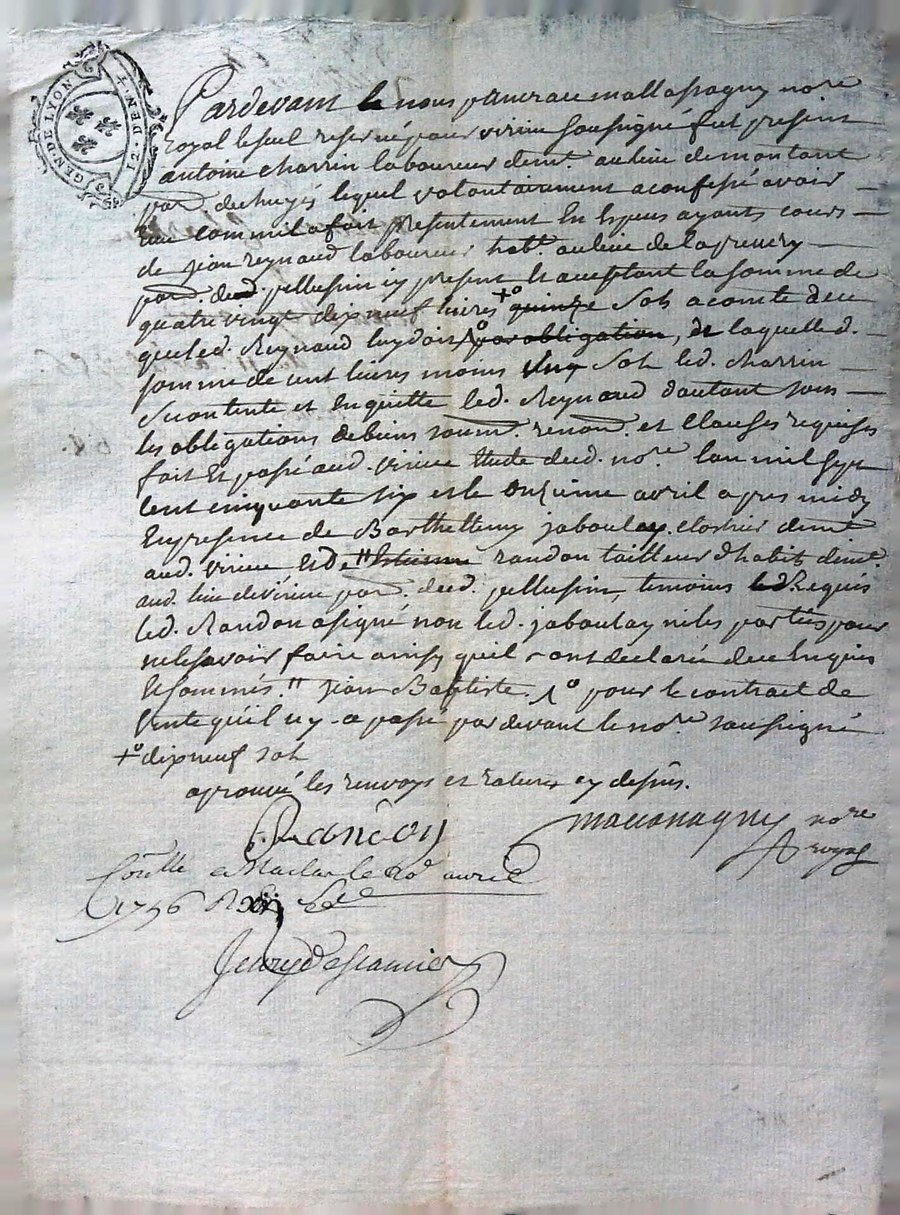 GEN. DE LYON 12. DEN.
Pardevant le nous pancrace mallassagny no.re
royal le seul reservé pour virieu soussigné fut present
antoine charrin laboureur demt. au lieu de montant
par. de chuyés lequel volontairement a confessé avoir
Reçu comme il a fait presentement En Especes ayants cours
de jean reynaud laboureur habt. au lieu de la
par. dud. pellussin icy present et acceptant la somme de
quatre vingt dix neuf livres +° quinze sols a comte de ce
que led. Reynaud luy doit 1° par obligation, de laquelle d.
somme de cent livres moins Un sol led. charrin
Se contente et En quitte led. Reynaud d'autant sous
les obligations de biens soum. renon. et clauses requises
fait Et passé aud. virieu Etude dud. no.re l'an mil sept
cent cinquante six et le Onzieme avril apres midy
En presence de Barthellemy jaboulay clostrier demt
aud. virieu Et de " Estienne randon tailleur d'habits demt.
aud. lieu de virieu par. dud. pellussin, temoins Requis
led. Randon a signé non led. jaboulay ni les parties pour
ne le savoir faire ainsy qu'il ont déclaré de ce Enquis
et sommés. " jean Baptiste. 1° pour le contract de
Vente qu'il luy a passé par devant le no.re soussigné
+° dix neuf sols
aprouvé les renvoys et ratures cy dessus.
Randon
no.re
royal
Con.lle a Maclas le 20e avril
1756 R